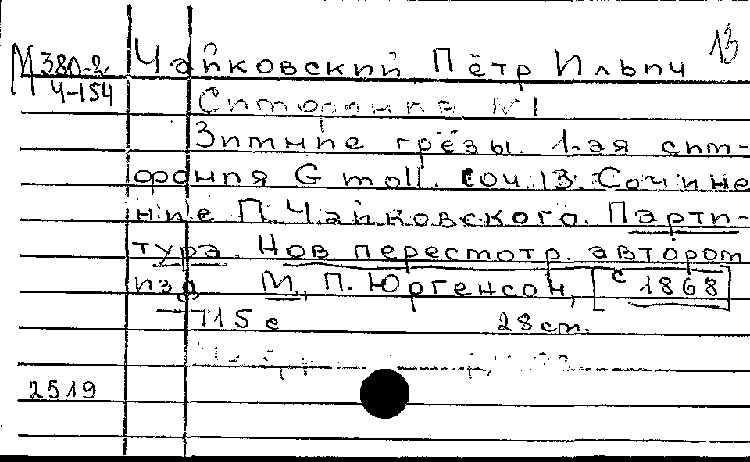 13
М 380-2 Чайковский Пётр Ильич
Ч-154
Симфония №1
Зимние грёзы. 1-ая сим-
фония G moll. соч. 13. Сочине
ние П. Чайковского. Парти-
тура. Нов пересмотр. автором
изд М., П. Юргенсон, [с 1868]
115 с 28 см.
2519